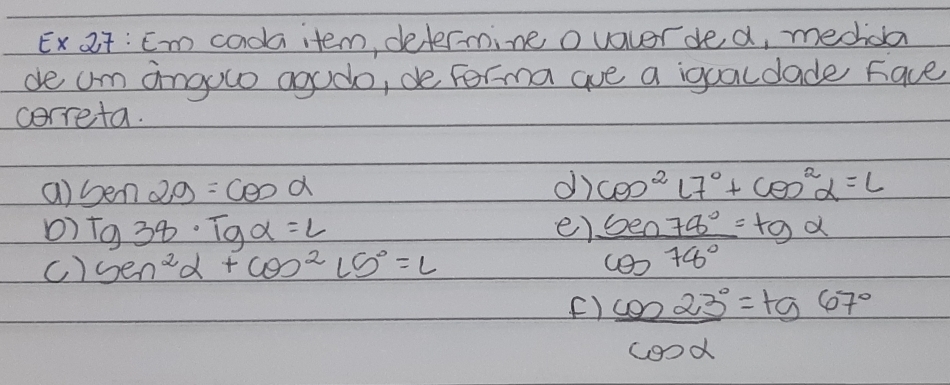 Ex 27: Em cada item, determine o valor de α, medida
de um ângulo agudo, de forma que a igualdade fique
correta.
a) sen 29 = cos α
b) Tg 38 · Tg α = 1
c) sen² α + cos² 15° = 1
d) cos² 17° + cos² α = 1
e) sen 78° = tg α
cos 78°
f) cos 23° = tg 67°
cos α